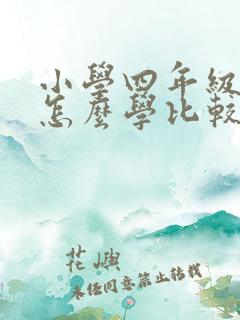 小學四年級
怎麼學比較
花嶼
未经同意禁止转载